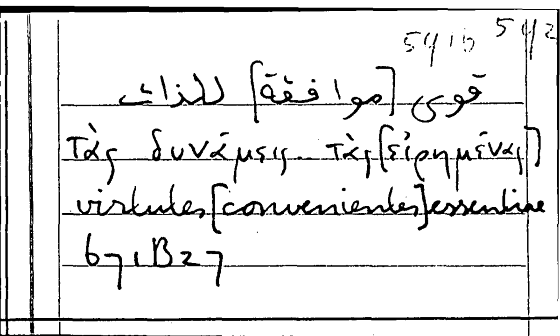 5916 592
قوى [موافقة] للذات
τὰς δυνάμεις... τὰς [εἰρημένας]
virtutes [convenientes] essentiae
671B27